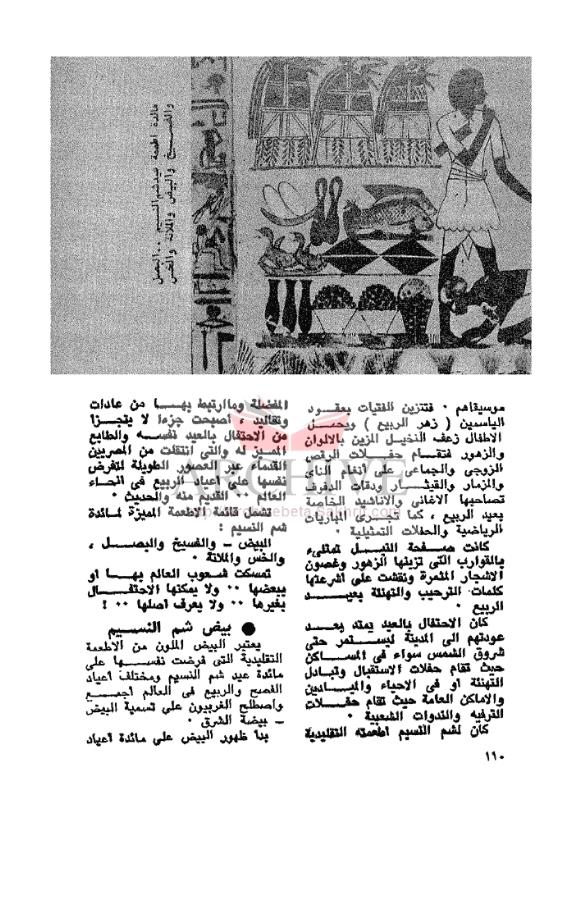 مائدة اطعمة عيد شم النسيم ٠٠ البصل
والفسيخ والبيض والملانة والخس
موسيقاهم ٠ فتتزين الفتيات بعقود
الياسمين ( زهر الربيع ) ويحمل
الاطفال زعف النخيل المزين بالالوان
والزهور فتقام حفلات الرقص
الزوجى والجماعى على أنغام الناى
والمزمار والقيثار ودقات الدفوف
تصاحبها الاغانى والاناشيد الخاصة
بعيد الربيع ، كما تجرى المباريات
الرياضية والحفلات التمثيلية ٠
كانت صفحة النيل تمتلىء
بالقوارب التى تزينها الزهور وغصون
الاشجار المثمرة ونقشت على أشرعتها
كلمات الترحيب والتهنئة بعيد
الربيع ٠
كان الاحتفال بالعيد يمتد بعد
عودتهم الى المدينة ليستمر حتى
شروق الشمس سواء فى المساكن
حيث تقام حفلات الاستقبال وتبادل
التهنئة أو فى الاحياء والميادين
والاماكن العامة حيث تقام حفلات
الترفيه والندوات الشعبية ٠
كان لشم النسيم أطعمته التقليدية
المفضلة وماارتبط بها من عادات
وتقاليد ، أصبحت جزءا لا يتجزأ
من الاحتفال بالعيد نفسه والطابع
المميز له والتى انتقلت من المصريين
القدماء عبر العصور الطويلة لتفرض
نفسها على أعياد الربيع فى انحاء
العالم ٠٠ القديم منه والحديث ٠
تشمل قائمة الاطعمة المميزة لمائدة
شم النسيم :
البيض – والفسيخ والبصل ،
والخس والملانة ٠
تمسكت شعوب العالم بها أو
ببعضها ٠٠ ولا يمكنها الاحتفال
بغيرها ٠٠ ولا يعرف أصلها ٠٠ !
● بيض شم النسيم
يعتبر البيض الملون من الاطعمة
التقليدية التى فرضت نفسها على
مائدة عيد شم النسيم ومختلف أعياد
الفصح والربيع فى العالم أجمع
واصطلح الغربيون على تسمية البيض
– بيضة الشرق ٠
بدأ ظهور البيض على مائدة أعياد
١١٠
ARCHIVE